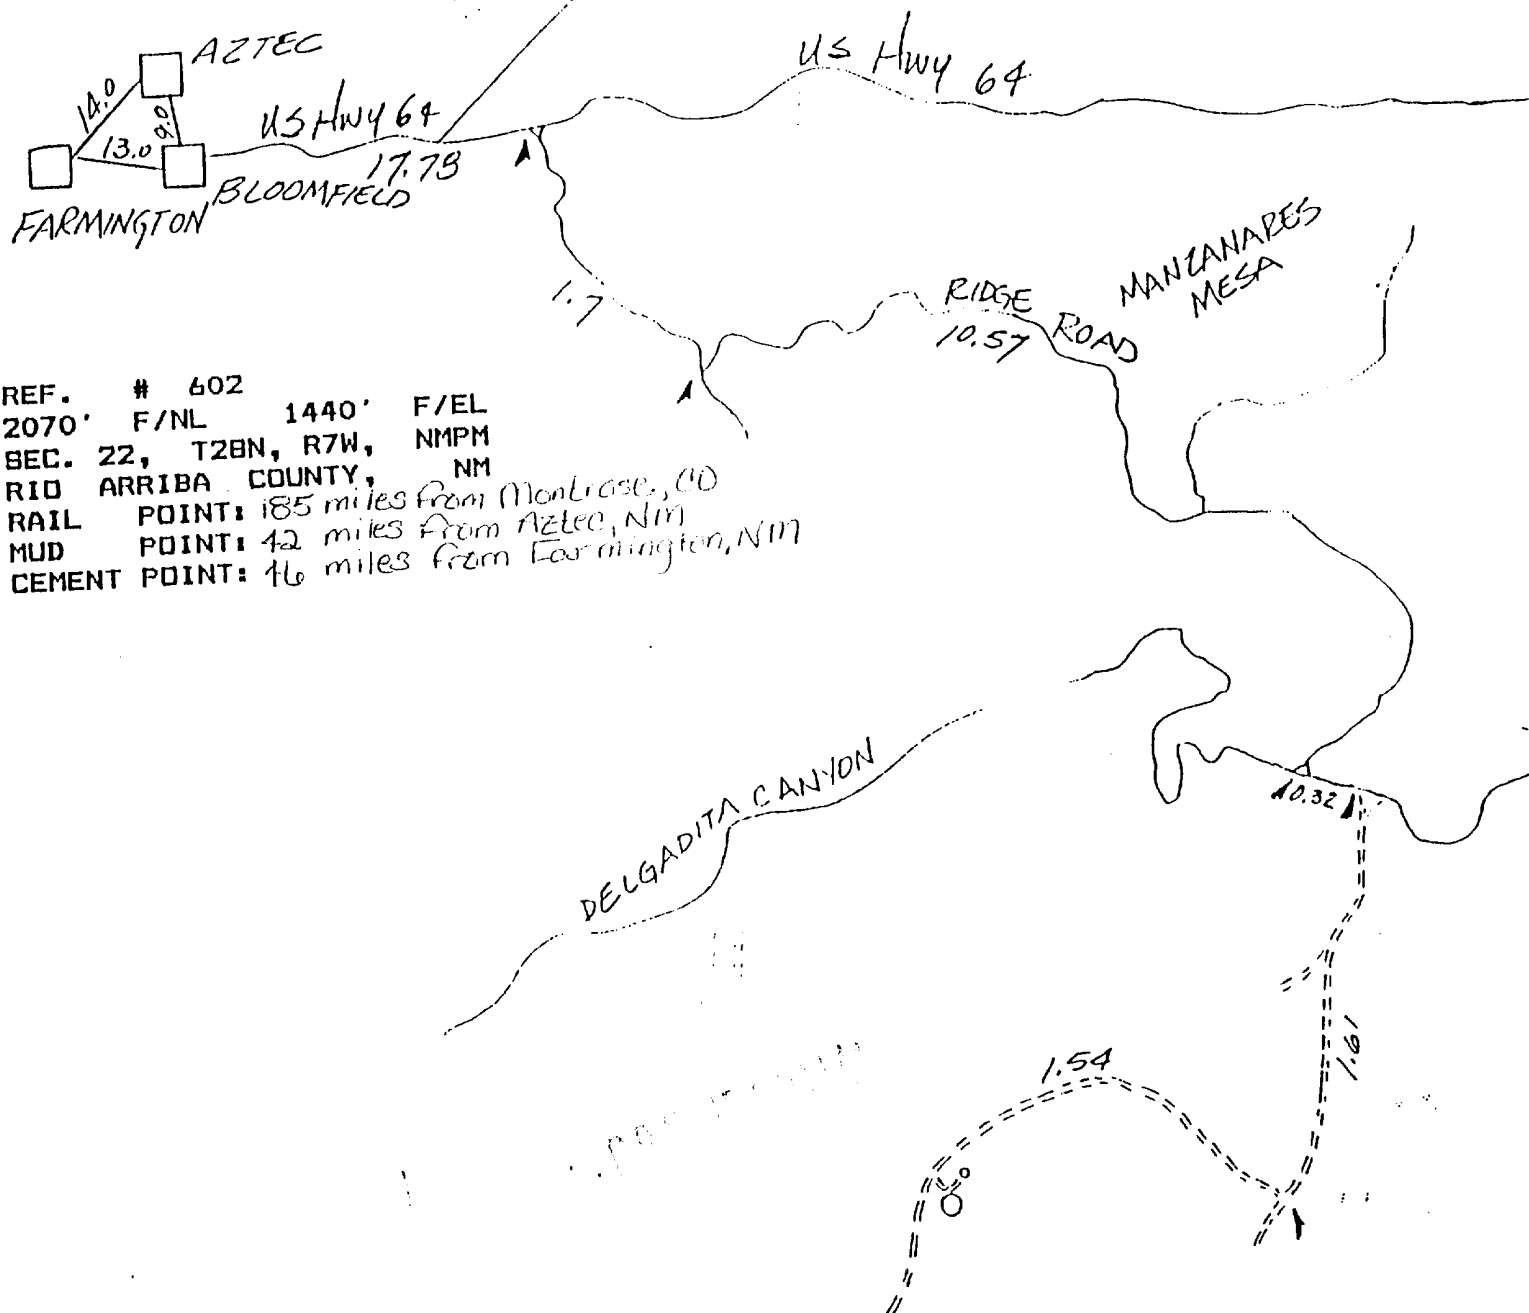 AZTEC
14.0
9.0
13.0
FARMINGTON
BLOOMFIELD
US HWY 64
17.78
US HWY 64
1.7
RIDGE ROAD
10.57
MANZANARES
MESA
REF. # 602
2070' F/NL 1440' F/EL
SEC. 22, T28N, R7W, NMPM
RIO ARRIBA COUNTY, NM
RAIL POINT: 185 miles from Montrose, CO
MUD POINT: 42 miles from Aztec, NM
CEMENT POINT: 46 miles from Farmington, NM
DELGADITA CANYON
0.32
1.61
1.54